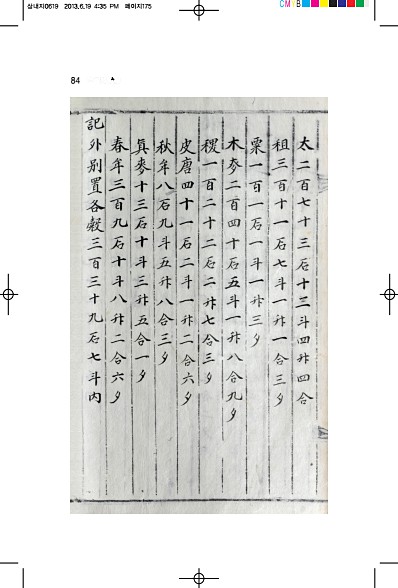 삼내지0619 2013.6.19 4:35 PM 페이지175
CMYB
84
太二百七十三石十三斗四升四合
租三百十一石七斗一升一合三夕
粟一百一石一斗一升三夕
木麥二百四十石五斗一升八合九夕
稷一百二十二石二升七合三夕
皮唐四十一石二斗一升二合六夕
秋牟八石九斗五升八合三夕
眞麥十三石十斗三升五合一夕
春牟三百九石十斗八升二合六夕
記外別置各穀三百三十九石七斗內